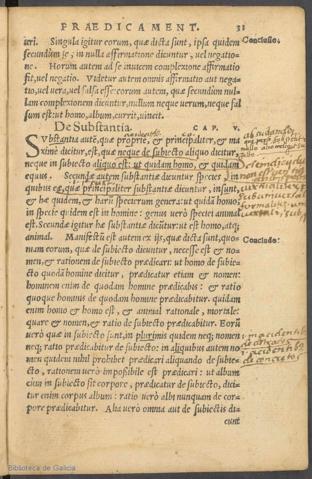 PRÆDICAMENT. 31
uri. Singula igitur eorum, quæ dicta sunt, ipsa quidem
secundum se, in nulla affirmatione dicuntur, vel negatio-
ne. Horum autem ad se inuicem complexione affirmatio
fit, vel negatio. Videtur autem omnis affirmatio aut nega-
tio, vel uera, vel falsa esse: eorum autem, quæ secundum nul-
lam complexionem dicuntur, nullum neque uerum, neque fal
sum est: ut homo, album, currit, uincit.
Conclusio.
De Substantia. CAP. V.
SVbstantia autē, quæ proprie, & principaliter, & ma
ximè dicitur, est, quæ neque de subiecto aliquo dicitur,
neque in subiecto aliquo est: ut quidam homo, & quidam
equus. Secundæ autem substantiæ dicuntur species in
quibus eę, quæ principaliter substantiæ dicuntur, insunt,
& hæ quidem, & harū specierum genera: ut quidā homo
in specie quidem est in homine: genus uerò speciei animal
est. Secundæ igitur hæ substantiæ dicūtur: ut est homo, atq;
animal. Manifestū est autem ex ijs, quæ dicta sunt, quo-
niam eorum, quæ de subiecto dicuntur, necesse est & no-
men, & rationem de subiecto prædicari: ut homo de subie-
cto quodā homine dicitur, prædicatur etiam & nomen:
hominem enim de quodam homine prædicabis: & ratio
quoque hominis de quodam homine prædicabitur. quidam
enim homo & homo est, & animal rationale, mortale:
quare & nomen, & ratio de subiecto prædicabitur. Eorū
uerò quæ in subiecto sunt, in plurimis quidem neq; nomen
neq; ratio prædicabitur de subiecto: in aliquibus autem no
men quidem nihil prohibet prædicari aliquando de subie-
cto, rationem uerò impossibile est prædicari: ut album
cùm in subiecto sit corpore, prædicatur de subiecto, dici-
tur enim corpus album: ratio uerò albi nunquam de cor-
pore prædicabitur. Alia uerò omnia aut de subiectis di-
cunt
Conclusio.
Biblioteca de Galicia